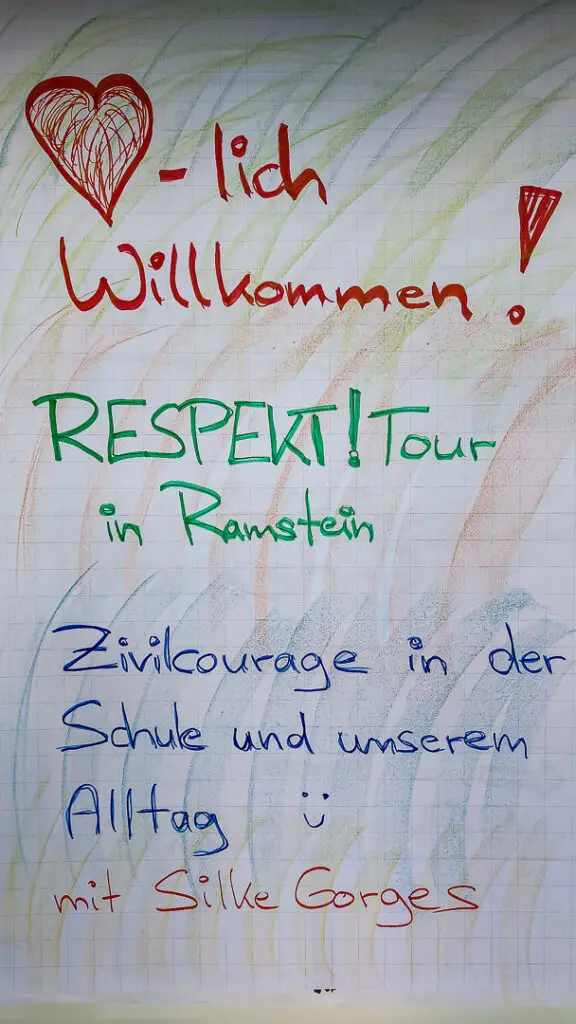 -lich
Willkommen!
RESPEKT! Tour
in Ramstein
Zivilcourage in der
Schule und unserem
Alltag
mit Silke Gorges